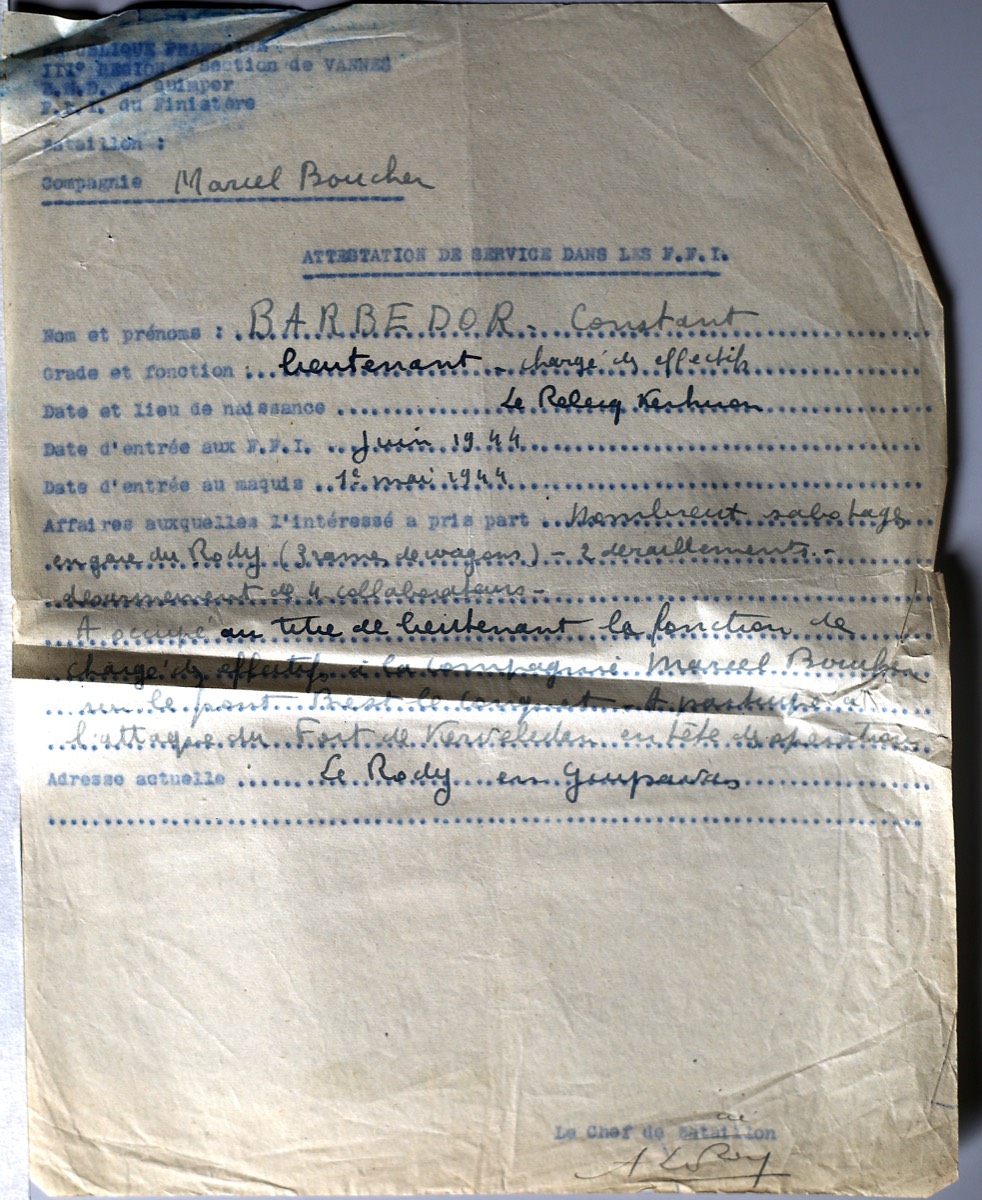 REPUBLIQUE FRANCAISE
IIIº REGION - Section de VANNES
de Quimper
F.F.I. du Finistère
Bataillon :
Compagnie Marcel Boucher
ATTESTATION DE SERVICE DANS LES F.F.I.
Nom et prénoms : BARBEDOR - Constant
Grade et fonction : lieutenant - chargé des effectifs
Date et lieu de naissance Le Relecq Kerhuon
Date d'entrée aux F.F.I. Juin 1944
Date d'entrée au maquis 1e mai 1944
Affaires auxquelles l'intéressé a pris part Nombreux sabotages
en gare du Rody (3 rames de wagons) - 2 déraillements -
désarmement de 4 collaborateurs -
A occupé au titre de lieutenant la fonction de
chargé des effectifs à la compagnie Marcel Boucher
sur le front Brest le Conquet - A participé à
l'attaque du Fort de en tête des opérations
Adresse actuelle Le Rody en Guipavas
Le Chef de Bataillon